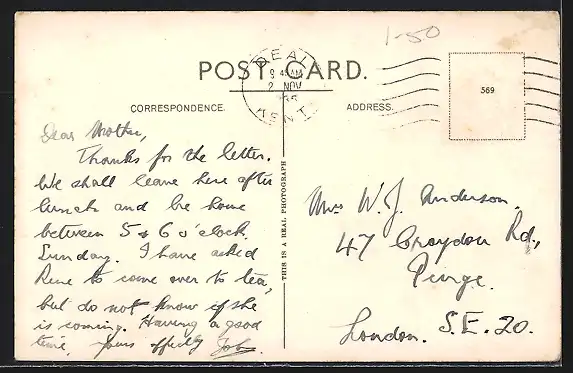 1-50
POST CARD.
DEAL
9 45 AM
2 NOV
KENT
569
CORRESPONDENCE.
ADDRESS.
Dear Mother,
Thanks for the letter.
We shall leave here after
lunch and be home
between 5 & 6 o'clock.
Sunday. I have asked
Rene to come over to tea,
but do not know if she
is coming. Having a good
time, yours affectly John.
THIS IS A REAL PHOTOGRAPH
Mrs W. J. Anderson.
47 Croydon Rd.,
Penge.
London. S.E. 20.